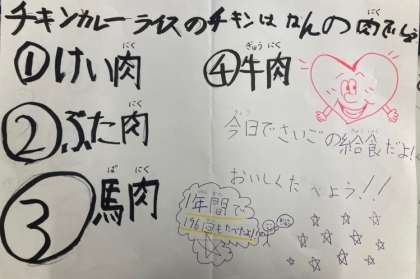 チキンカレーライスのチキンはなんの肉でしょう
にく
①けい肉
にく
②ぶた肉
にく
③馬肉
ば にく
④牛肉
ぎゅう にく
今日でさいごの給食だよ!
きょう きゅうしょく
おいしくたべよう!!
1年間で
ねんかん
196回もたべたよ!